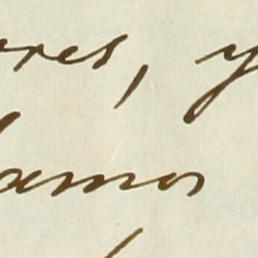 res, y
amos